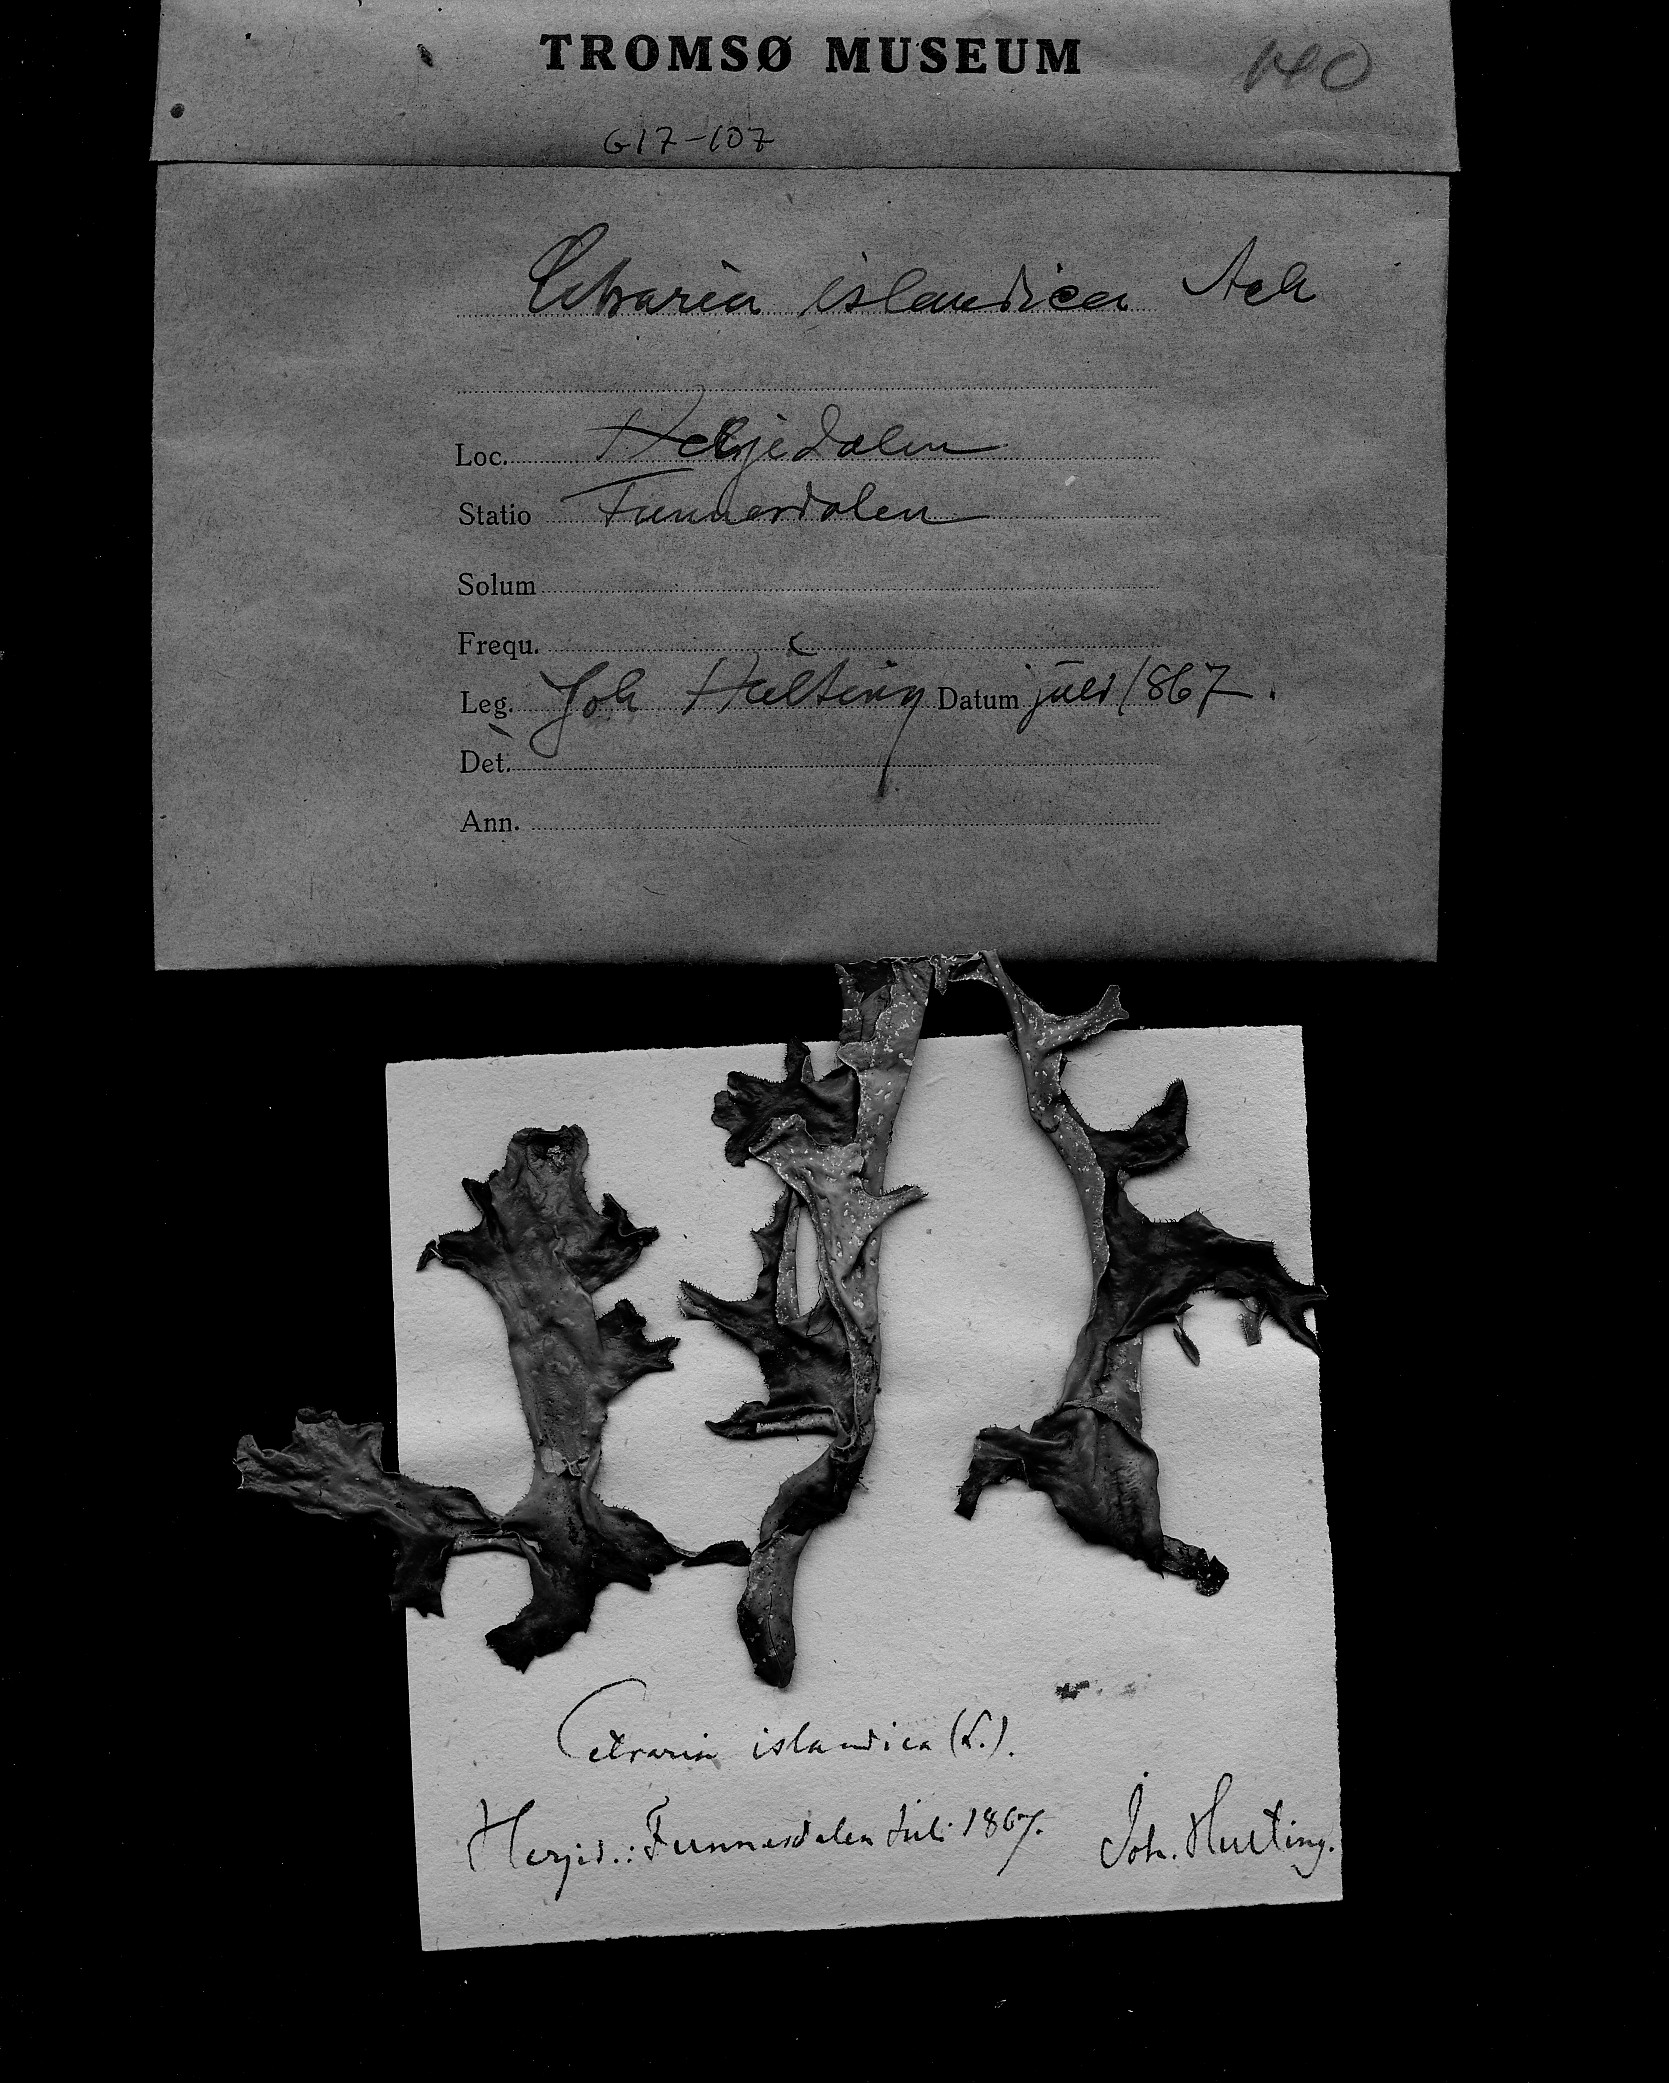 TROMSØ MUSEUM
140
G17-107
Cetraria islandica Ach
Loc. Herjedalen
Statio Funnesdalen
Solum
Frequ.
Leg. Joh Hulting Datum juli 1867.
Det.
Ann.
Cetraria islandica (L.).
Herjed.: Funnesdalen Juli 1867. Joh. Hulting.